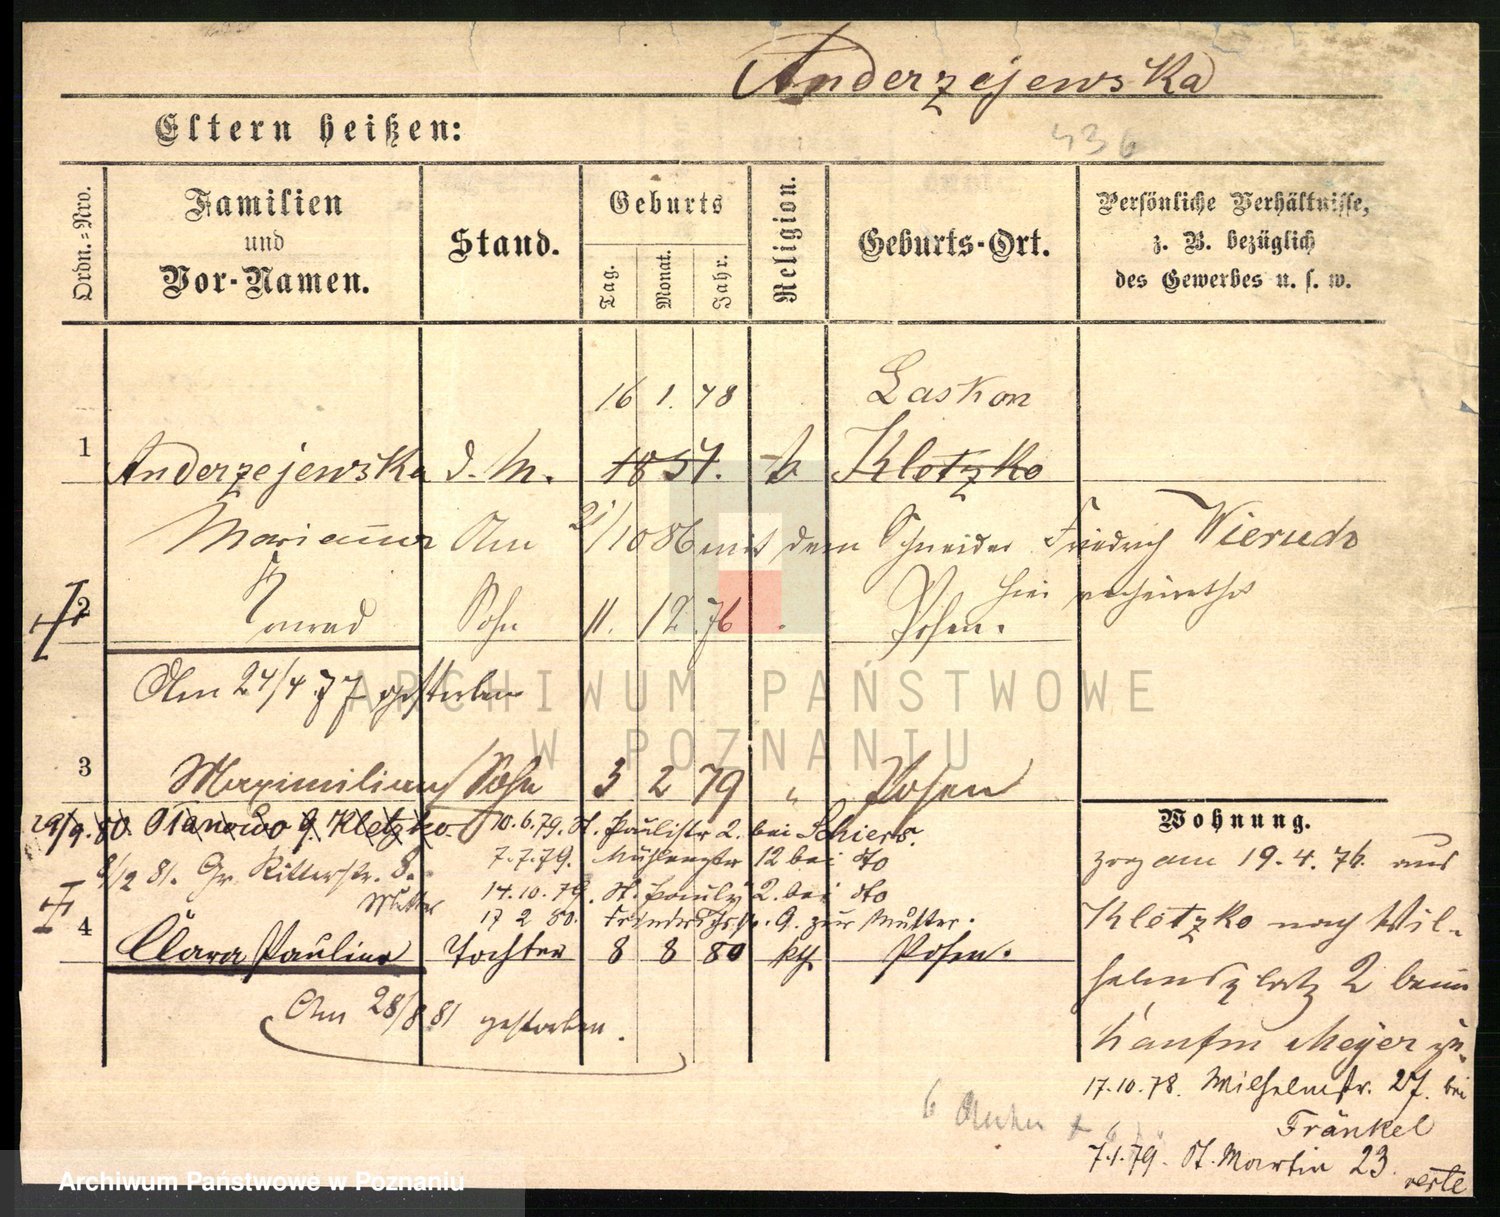 Anderzejewska
436
Eltern heißen:
Ordn.=Nro.
Familien
und
Vor-Namen.
Stand.
Geburts
Tag.
Monat.
Jahr.
Religion.
Geburts-Ort.
Persönliche Verhältnisse,
z. B. bezüglich
des Gewerbes u. s. w.
16 1. 48 Laskon
1 Anderzejewska d. M. 1851. k Kletzko
Marianna Am 21/10 86 mit dem Schneider Friedrich Wierudo
hier verheirathet
2 Konrad Sohn 11. 12. 76 Posen.
Am 24/4 77 gestorben
ARCHIWUM PAŃSTWOWE
W POZNANIU
3 Maximilian Sohn 3 2 79 " Posen
29/9. 80. Olanowo b. Kletzko 10.6.79. St. Paulistr 2. bei Schiers.
8/2 81. Gr. Ritterstr. 8. 7.7.79. Mühlenstr 12 bei dto
Mutter 14.10.79. St. Pauli 2. bei dto
17 2 80. Friedrichstr. 9. zur Mutter.
4 Clara Pauline Tochter 8 8 80 kth. Posen.
Am 28/8 81 gestorben.
Wohnung.
zog am 19.4.76. aus
Kletzko nach Wil-
helmsplatz 2 beim
Kaufm Meyer zu.
17.10.78. Wilhelmstr. 27. bei
Fränkel
7.1.79. St. Martin 23.
verte
6
Archiwum Państwowe w Poznaniu